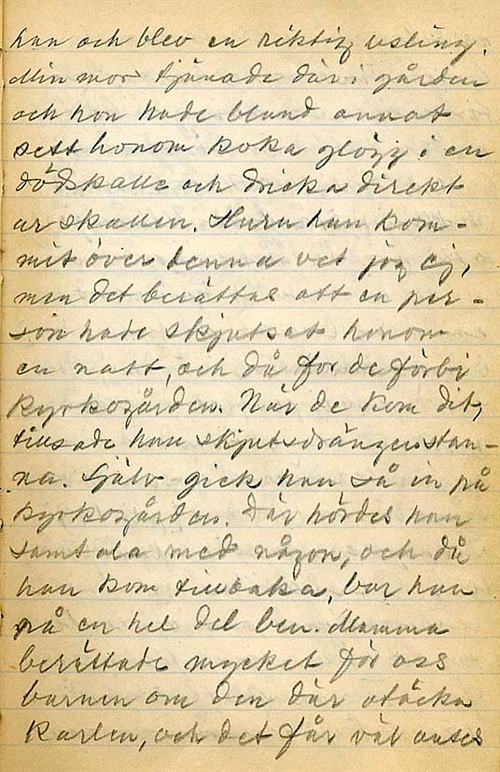 han och blev en riktig usling.
Min mor tjänade där i gården
och hon hade bland annat
sett honom koka glögg i en
dödskalle och dricka direkt
ur skallen. Huru han kom-
mit över denna vet jag ej,
men det berättas att en per-
son hade skjutsat honom
en natt, och då for de förbi
kyrkogården. När de kom dit,
tillsade han skjutsdrängen stan-
na. Själv gick han så in på
kyrkogården. Där hördes han
samtala med någon, och då
han kom tillbaka, bar han
på en hel del ben. Mamma
berättade mycket för oss
barnen om den där otäcka
karlen, och det får väl anses